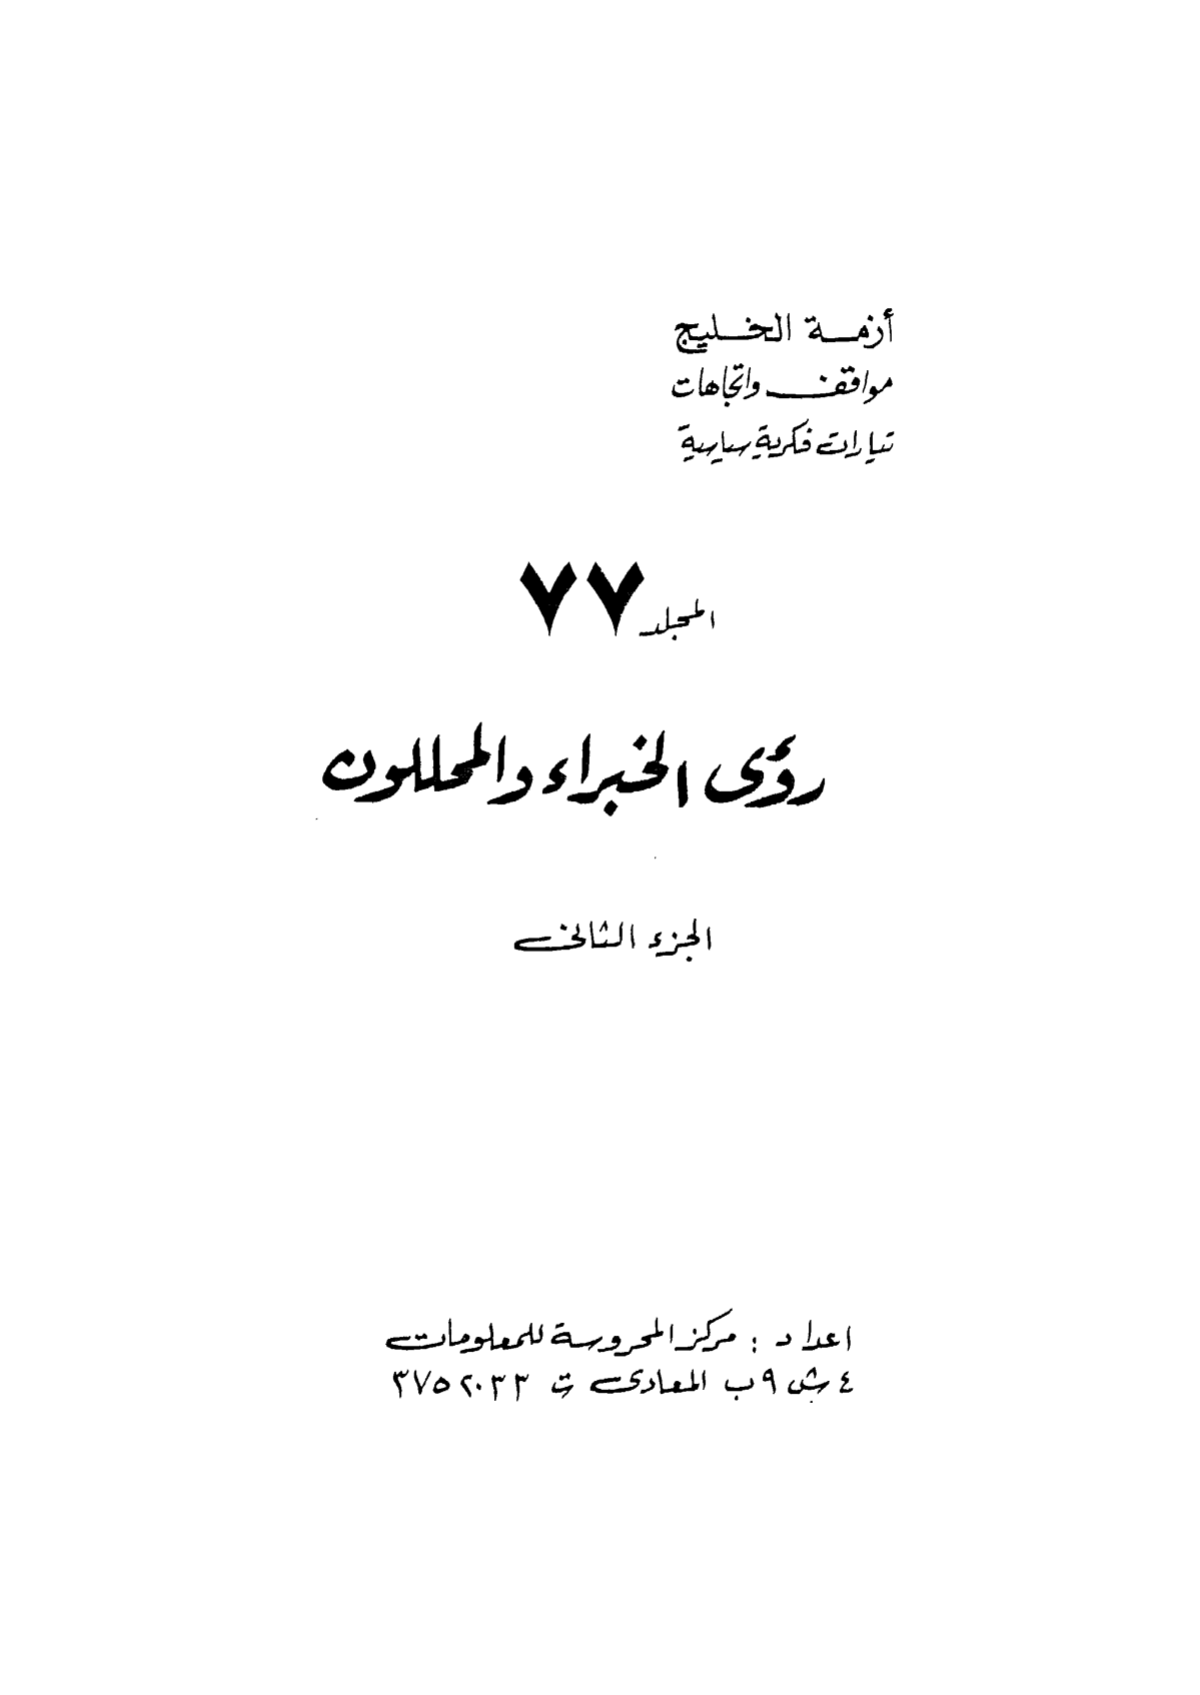 أزمة الخليج
مواقف واتجاهات
تيارات فكرية سياسية
المجلد ٧٧
رؤى الخبراء والمحللون
الجزء الثانى
اعداد : مركز المحروسة للمعلومات
٤ ش ٩ب المعادى ت ٣٧٥٢٠٣٣